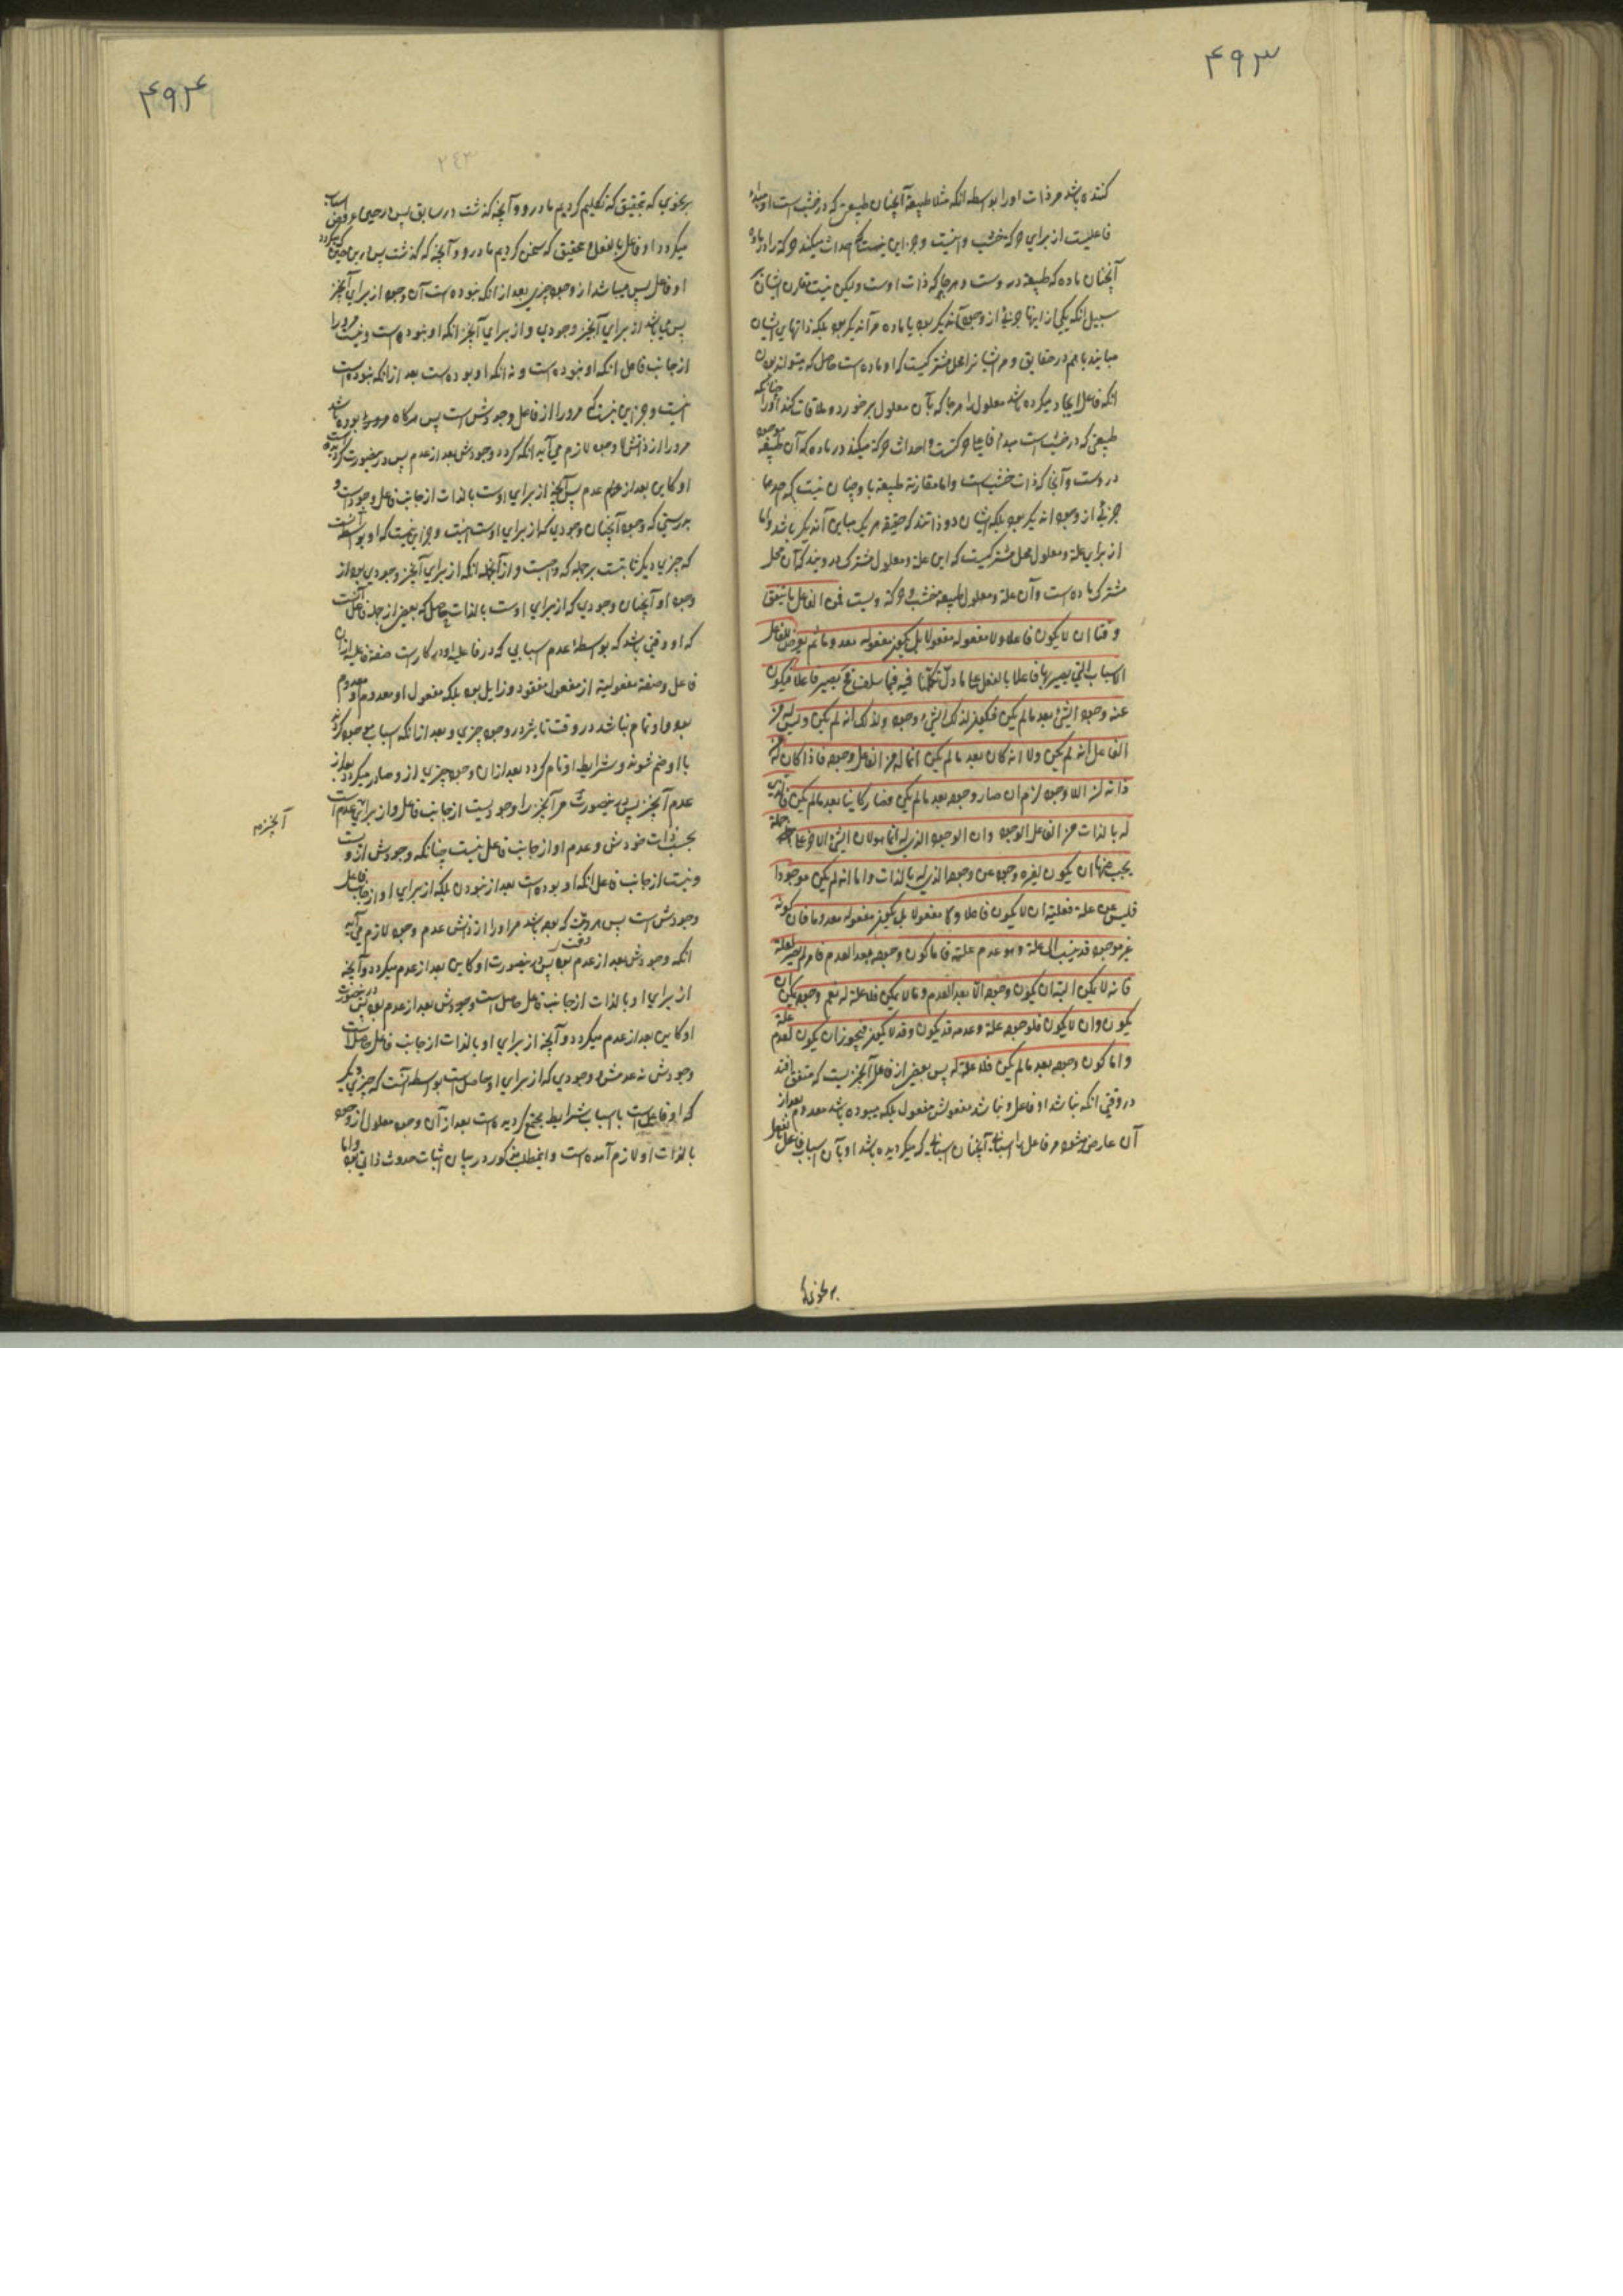 ۴۹۳
کننده باشد مر ذات او را بواسطه انکه مثلا طبیعة آنچنان طبیعتی که در خشبست او مبداء
فاعلیست از برای حرکة خشب و نیست و جز این نیست که احداث میکند حرکة را در ماده
آنچنان ماده که طبیعة دروست و هرجا که ذات اوست ولیکن نیست تقارن ایشان بر
سبیل انکه یکی از اینها جزئی از وجود آنه یکر بود یا ماده مر آنه یکر بود بلکه ذاتهای ایشان
مباینند باهم در حقایق و مر ایشانرا محل مشترکیست که او ماده است حاصل که میتواند بودن
انکه فاعل ایجاد میکرده باشد معلول را هرجا که بآن معلول برخورد و ملاقات کند او را چنانکه
طبیعتی که در خشبست مبداء فاعلی حرکتست و احداث حرکة میکند در ماده که آن طبیعة موجود
دروست و آنجا که ذات خشبست و اما مقارنة طبیعة با او چنان نیست که احدهما
جزئی از وجود انه یکر بود بلکه ایشان دو ذاتند که حقیقة هر یک مباین آنه یکر باشد و اما
از برای علة و معلول محل مشترکیست که این علة و معلول مشترک در ویند که آن محل
مشترک ماده است و آن علة و معلول طبیعة خشب و حرکة ویست فمن الفاعل ما یتفق
وقتا ان لا یکون فاعلا ولا مفعوله مفعولا بل یکون مفعوله معدوما ثم یعرض للفاعل
الاسباب التی یصیر بها فاعلا بالفعل علی ما دل تکلمنا فیه فیما سلف فح یصیر فاعلا فیکون
عنه وجود الشئ بعد ما لم یکن فیکون لذلک الشئ وجود ولذلک انه لم یکن ولیس له من
الفاعل انه لم یکن ولا انه کان بعد ما لم یکن انما له من الفاعل وجوده فاذا کان له من
ذاته لن اللاوجود لزم ان صار وجوده بعد ما لم یکن فصار کاینا بعد ما لم یکن فالذی
له بالذات من الفاعل الوجود وان الوجود الذی له انما هو لان الشئ الاخر علی جملة
یجب عنها ان یکون لغیره وجود عن وجوده الذی له بالذات واما انه لم یکن موجودا
فلیس عن علة فعلیة ان لا یکون فاعلا ولا مفعولا بل یکون مفعوله معدوما فان کونه
غیر موجود قد ینسب الی علة و هو عدم علیة فاما کون وجوده بعد العدم فامر لم یصر لعلة
فانه لا یمکن البتة ان یکون وجوده الا بعد العدم وما لا یمکن فلا علة له نعم وجوده یمکن ان
یکون وان لا یکون فلوجوده علة وعدمه قد یکون وقد لا یکون فیجوز ان یکون لعدمه علة
واما کون وجوده بعد ما لم یکن فلا علة له پس بعضی از فاعل آنچیزیست که متفق افتد
در وقتی انکه نباشد او فاعل و نباشد مفعولش مفعول بلکه میبوده باشد معدوم بعد از
آن عارض شود مر فاعل را اسبابی آنچنان اسبابی که میکردیده باشد او بآن اسباب فاعل بالفعل
بر نحوی
۴۹۴
۲٤۳
بر نحوی که تحقیق که تکلیم کردیم ما درو و آنچه گذشت در سابق پس در حین عروض اسباب
میکردد او فاعل بالفعل و تحقیق که سخن کردیم ما درو و آنچه که گذشت پس درین حین که میکردد
او فاعل پس میباشد از وجود چیزی بعد از انکه نبوده است آن وجود از برای آنچیز
پس میباشد از برای آنچیز وجودی و از برای آنچیز انکه او نبوده است و نیست مرورا
از جانب فاعل انکه او نبوده است و نه انکه او بوده است بعد از انکه نبوده است
نیست و جز این نیست که مرورا از فاعل وجودش است پس هرکاه مرورا بوده باشد
مرورا از ذاتش لا وجود لازم می آید انکه کردد وجودش بعد از عدم پس درینصورت کردیده است
او کاین بعد از عدم پس آنچه از برای اوست بالذات از جانب فاعل وجودست و
بدرستی که وجود آنچنان وجودی که از برای اوست نیست و جز این نیست که او بواسطه آنست
که چیزی دیگر ثابتست بر جمله که واجبست و از آنجمله انکه از برای آنچیز وجودی بود از
وجود او آنچنان وجودی که از برای اوست بالذات حاصل که بعضی از جمله فاعل آنست
که او وقتی باشد که بواسطهٔ عدم اسبابی که در فاعلیة او در کارست صفة فاعلیة از آن
فاعل و صفة مفعولیة از مفعول مفقود و زایل بود بلکه مفعول او معدوم او معدوم
بود و او تمام نباشد در وقت تاثیر در وجود چیزی و بعد از انکه اسباب موجود کردند
با او ضم شوند و شرایط او تمام کردد بعد از ان وجود چیزی از و صادر میکردد بعد از
عدم آنچیز پس درینصورت مر آنچیز را وجودیست از جانب فاعل و از برای عدم است
آنچیز هم
بحسب ذات خودش و عدم او از جانب فاعل نیست چنانکه وجودش ازوست
و نیست از جانب فاعل انکه او بوده است بعد از نبودن بلکه از برای او از جانب فاعل
وجودش است پس هر وقت که بوده باشد مر او را از ذاتش عدم وجود لازم می آید
انکه وجودش بعد از عدم بود پس درینصورت او کاین بعد از عدم میکردد و آنچه
از برای او بالذات از جانب فاعل حاصل است وجودش بعد از عدم بود پس درینصورت
او کاین بعد از عدم میکردد و آنچه از برای او بالذات از جانب فاعل حاصل است
وجودش نه عدمش و وجودی که از برای او حاصل است بواسطه آنست که چیزی دیگر
که او فاعل است با اسباب شرایط مجتمع کردیده است بعد از آن وجود معلول از وجود
بالذات او لازم آمده است و اینمطلب مذکور در بیان اثبات حدوث ذاتی بود و اما